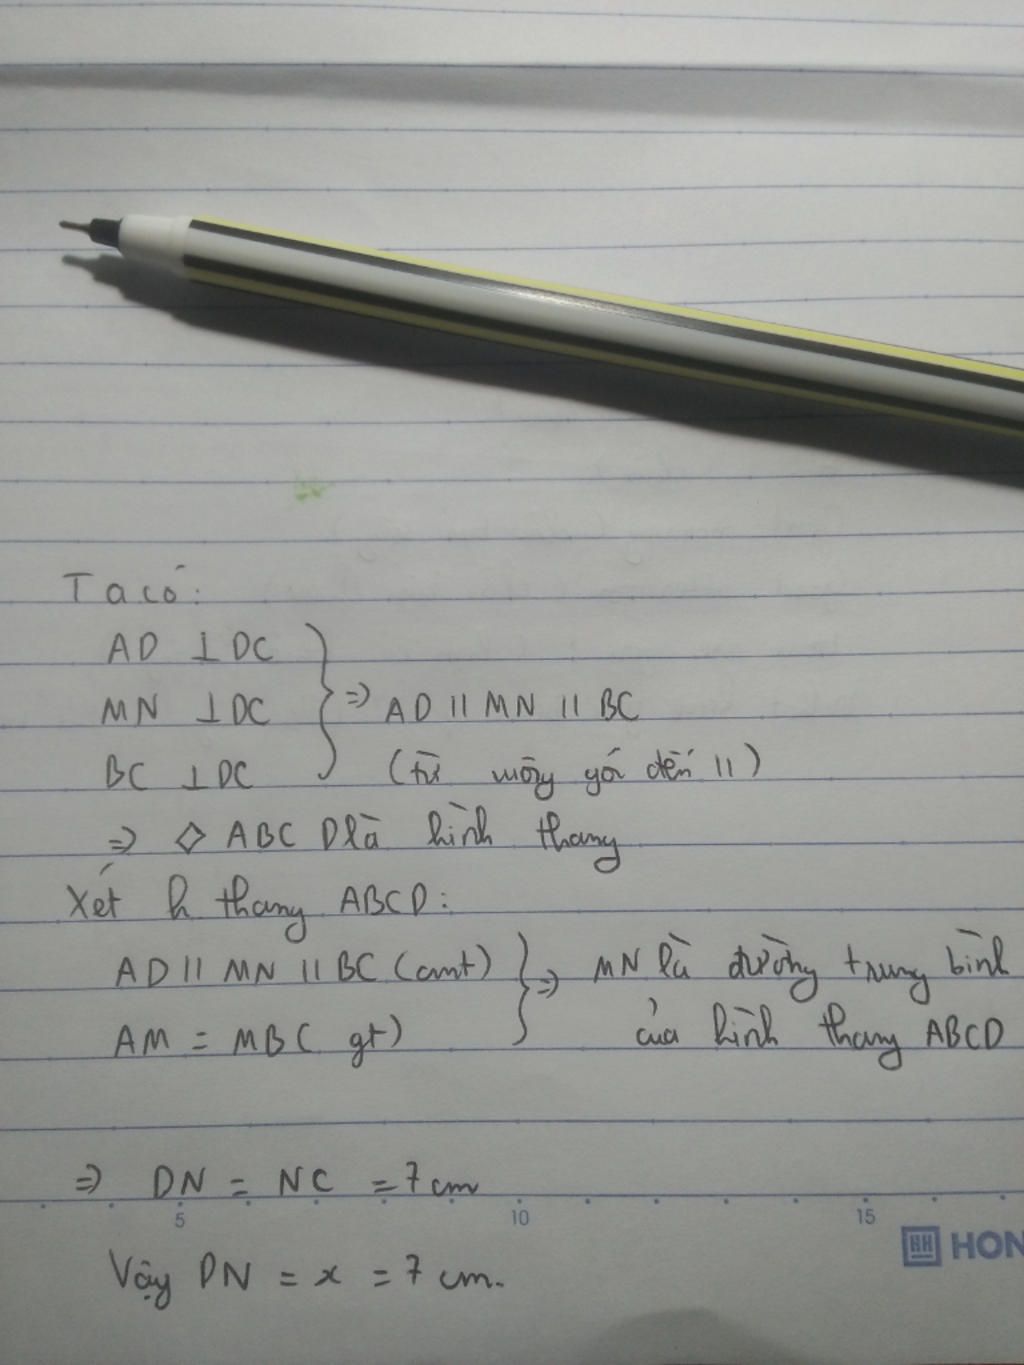 Ta có:
AD ⊥ DC
MN ⊥ DC } => AD || MN || BC
BC ⊥ DC (từ vuông góc đến ||)
=> ◇ ABCD là hình thang
Xét h thang ABCD:
AD || MN || BC (cmt) } => MN là đường trung bình
AM = MB ( gt) của hình thang ABCD
=> DN = NC = 7 cm
5 10 15
HON
Vậy DN = x = 7 cm.